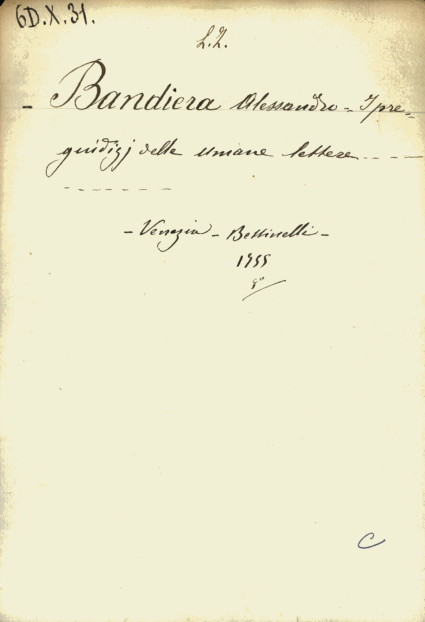 6D.X.31.
L.I.
- Bandiera Alessandro = I pre=
guidizj delle umane lettere - - - -
- - - - - - -
- Venezia - Bettinelli -
1755
8°
C